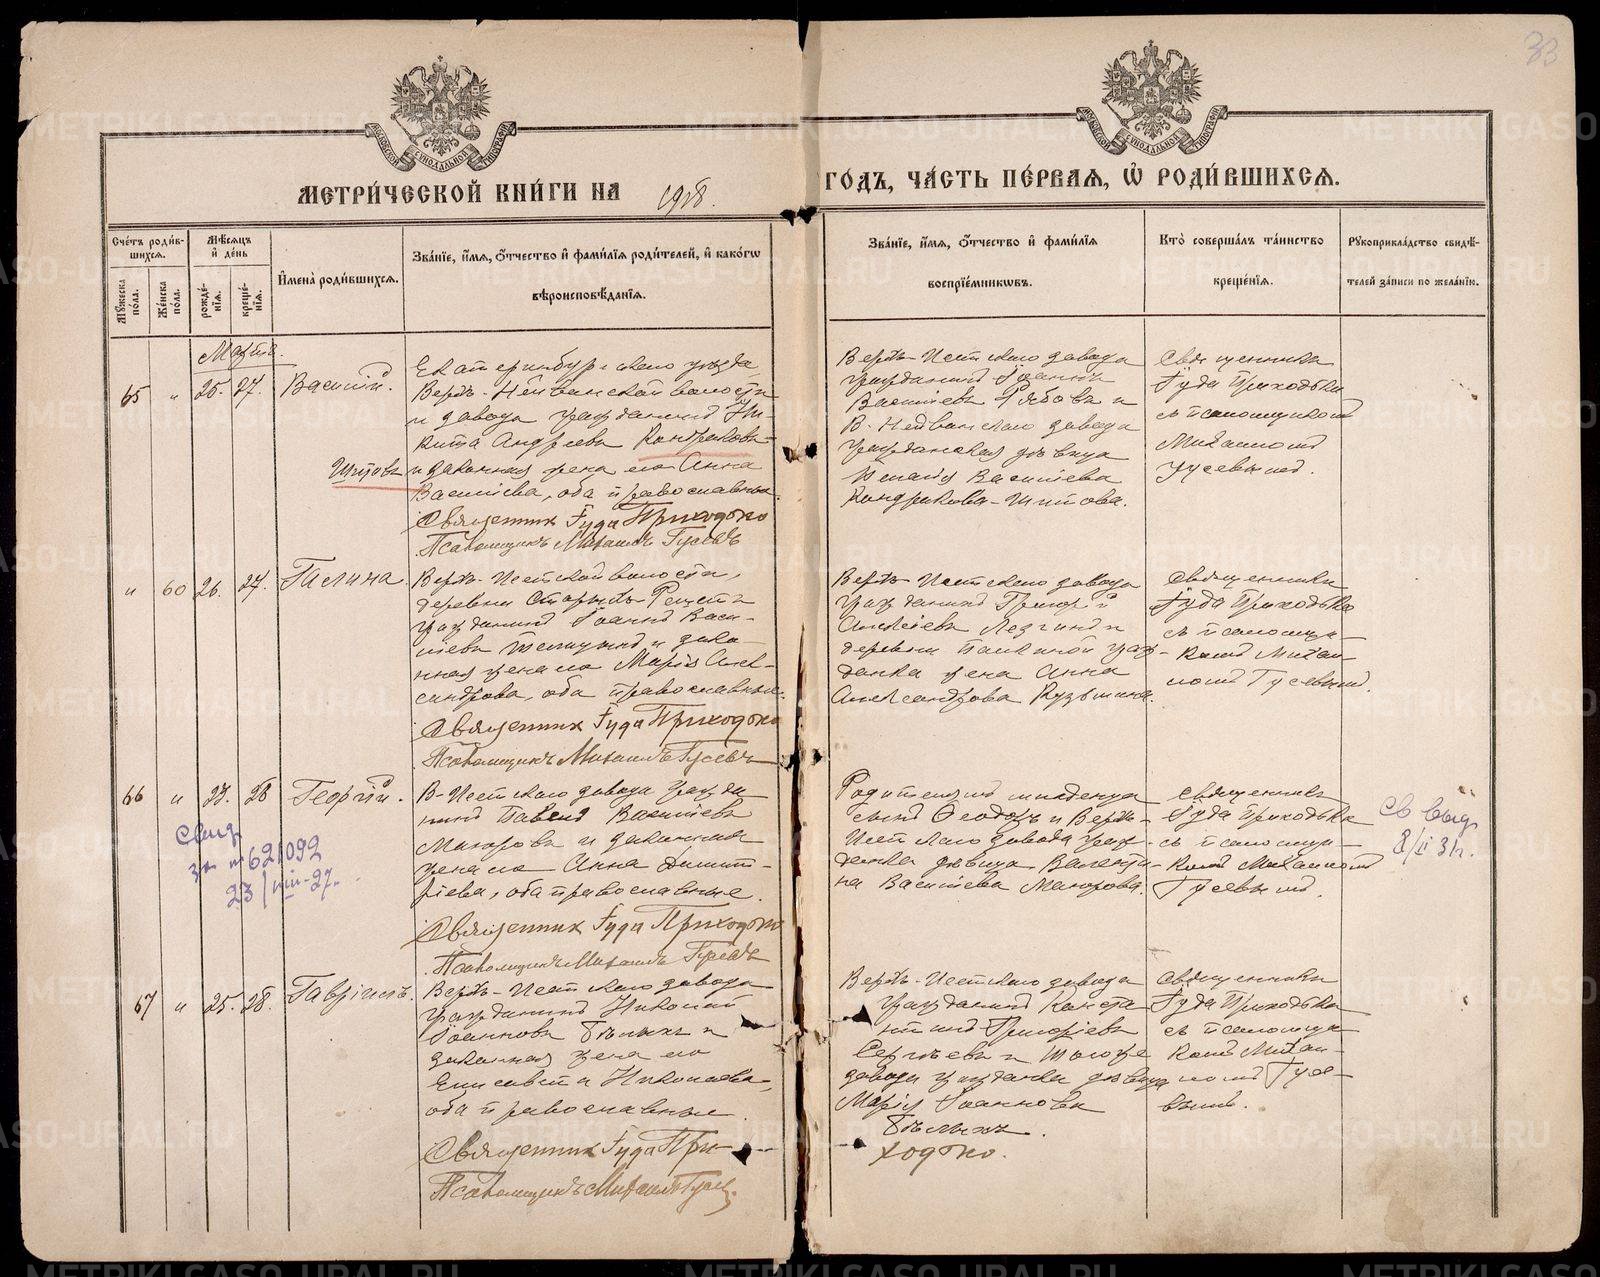 33
МОСКОВСКОЙ СѴНОДАЛЬНОЙ ТИПОГРАФІИ
МОСКОВСКОЙ СѴНОДАЛЬНОЙ ТИПОГРАФІИ
МЕТРИ́ЧЕСКОЙ КНИ́ГИ НА 1918. ГО́ДЪ, ЧА́СТЬ ПЕ́РВАЯ, Ѽ РОДИ́ВШИХСЯ.
Сче́тъ роди́в-
шихся.
Мꙋ́жеска по́ла.
Же́нска по́ла.
Мѣ́сяцъ и҆ де́нь
рожде́-
нїя.
креще́-
нїя.
И҆мена̀ роди́вшихся.
Зва́нїе, и҆́мя, ѻ҆́тчество и҆ фами́лїя роди́телей, и҆ како́гѡ
вѣроисповѣ́данїя.
Зва́нїе, и҆́мя, ѻ҆́тчество и҆ фами́лїя
воспрїе́мникѡвъ.
Кто̀ соверша́лъ та́инство
креще́нїя.
Рꙋкоприкла́дство свидѣ́-
телей за́писи по жела́нїю.
Марта.
65 " 25. 27. Василій.
Екатеринбургскаго уѣзда,
Верхъ-Нейвинской волости
и завода гражданинъ Ни-
кита Андреевъ Кондраковъ-
Шитовъ и законная жена его Анна
Васильева, оба православные.
Священник Іуда Приходько
Псаломщикъ Михаилъ Гусевъ
Верхъ-Исетскаго завода
гражданинъ Іоаннъ
Васильевъ Рябовъ и
В. Нейвинскаго завода
гражданская дѣвица
Васильева
Кондракова-Шитова.
Священникъ
Іуда Приходько
съ псаломщикомъ
Михаиломъ
Гусевымъ.
" 60 26. 27. Галина.
Верхъ-Исетской волости,
деревни Старыхъ Решетъ
гражданинъ Іоаннъ Васи-
льевъ и зако-
нная жена его Марія Алек-
сандрова, оба православные.
Священник Іуда Приходько
Псаломщикъ Михаилъ Гусевъ
Верхъ-Исетскаго завода
гражданинъ Григорій
Алексѣевъ и
деревни граж-
данка жена Анна
Александрова Кузьмина.
Священникъ
Іуда Приходько
съ псаломщи-
комъ Михаи-
ломъ Гусевымъ.
66 " 27. 28 Георгій.
В-Исетскаго завода гражда
нинъ Павелъ Васильевъ
Макаровъ и законная
жена его Анна Димит-
ріева, оба православные.
Священник Іуда Приходько
Псаломщикъ Михаилъ Гусевъ
Родителей младенца
сынъ Ѳеодоръ и Верхъ-
Исетскаго завода граж-
данка дѣвица Валенти-
на Васильева Макарова.
священникъ
Іуда Приходько
съ псаломщи-
комъ Михаиломъ
Гусевымъ.
Свид.
за № 621092
23/VIII-27.
Св выд
67 " 25. 28. Гавріилъ.
Верхъ-Исетскаго завода
гражданинъ Николай
Іоанновъ Бѣлыхъ и
законная жена его
Елисавета Николаева,
оба православные.
Священник Іуда При-
ходько.
Псаломщикъ Михаилъ Гусев.
Верхъ-Исетскаго завода
гражданинъ Конста
нтинъ Григорьевъ
Сергѣевъ и тогоже
завода гражданка дѣвица
Марія Іоаннова
Бѣлыхъ.
священникъ
Іуда Приходько
съ псаломщи
комъ Михаи-
ломъ Гусе-
вымъ.